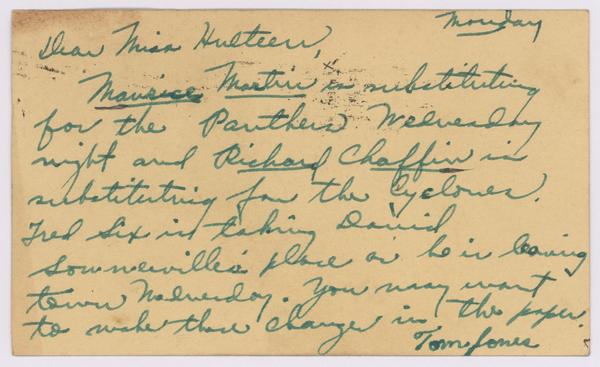 Monday
Dear Miss Hulteen,
Maurice Martin is substituting
for the Panthers Wednesday
night and Richard Chaffin is
substituting for the Cyclones.
Fred Six is taking David
Sommerville's place as he is leaving
town Wednesday. You may want
to make those changes in the paper.
Tom Jones